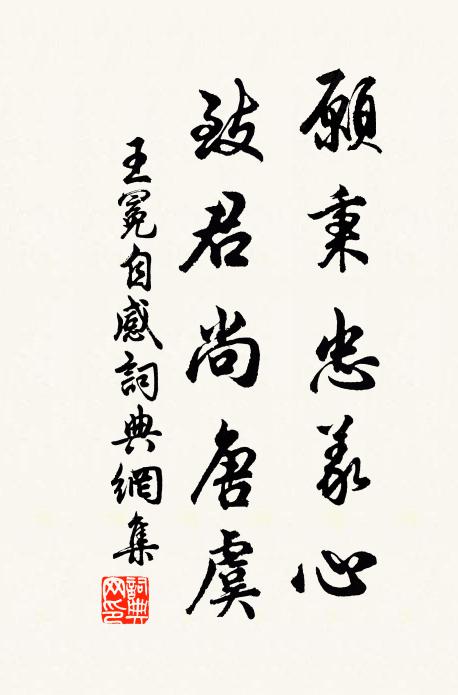 願秉忠義心
致君尚唐虞
王冕自感詞典網集
詞典网印